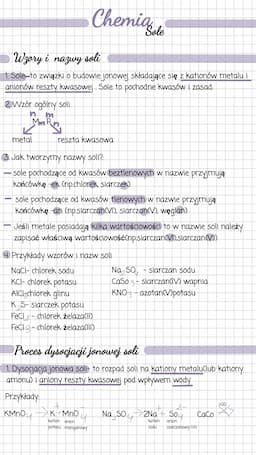 Chemia
Sole
Wzory i nazwy soli
1. Sole-to związki o budowie jonowej składające się z kationów metalu i
anionów reszty kwasowej. Sole to pochodne kwasów i zasad.
2. Wzór ogólny soli
n m
MmRn
metal reszta kwasowa
3. Jak tworzymy nazwy soli?
- sole pochodzące od kwasów beztlenowych w nazwie przyjmują
końcówkę -ek (np.chlorek, siarczek)
- sole pochodzące od kwasów tlenowych w nazwie przyjmują
końcówkę -an (np.siarczan(VI), siarczan(IV), węglan)
- Jeśli metale posiadają kilka wartościowości to w nazwie soli należy
zapisać właściwą wartościowość(np.siarczan(VI),siarczan(IV))
4. Przykłady wzorów i nazw soli
NaCl- chlorek sodu Na2SO4 - siarczan sodu
KCl- chlorek potasu CaSo - siarczan(IV) wapnia
AlCl3chlorek glinu KNO3 - azotan(V)potasu
K2S- siarczek potasu
FeCl2- chlorek żelaza(II)
FeCl3- chlorek żelaza(III)
Proces dysocjacji jonowej soli
1. Dysocjacja jonowa soli- to rozpad soli na kationy metalu(lub kationy
amonu) i aniony reszty kwasowej pod wpływem wody
Przykłady:
KMnO4 → K + MnO4 Na2SO4 → 2Na + So4 CaCo
kation anion kation anion